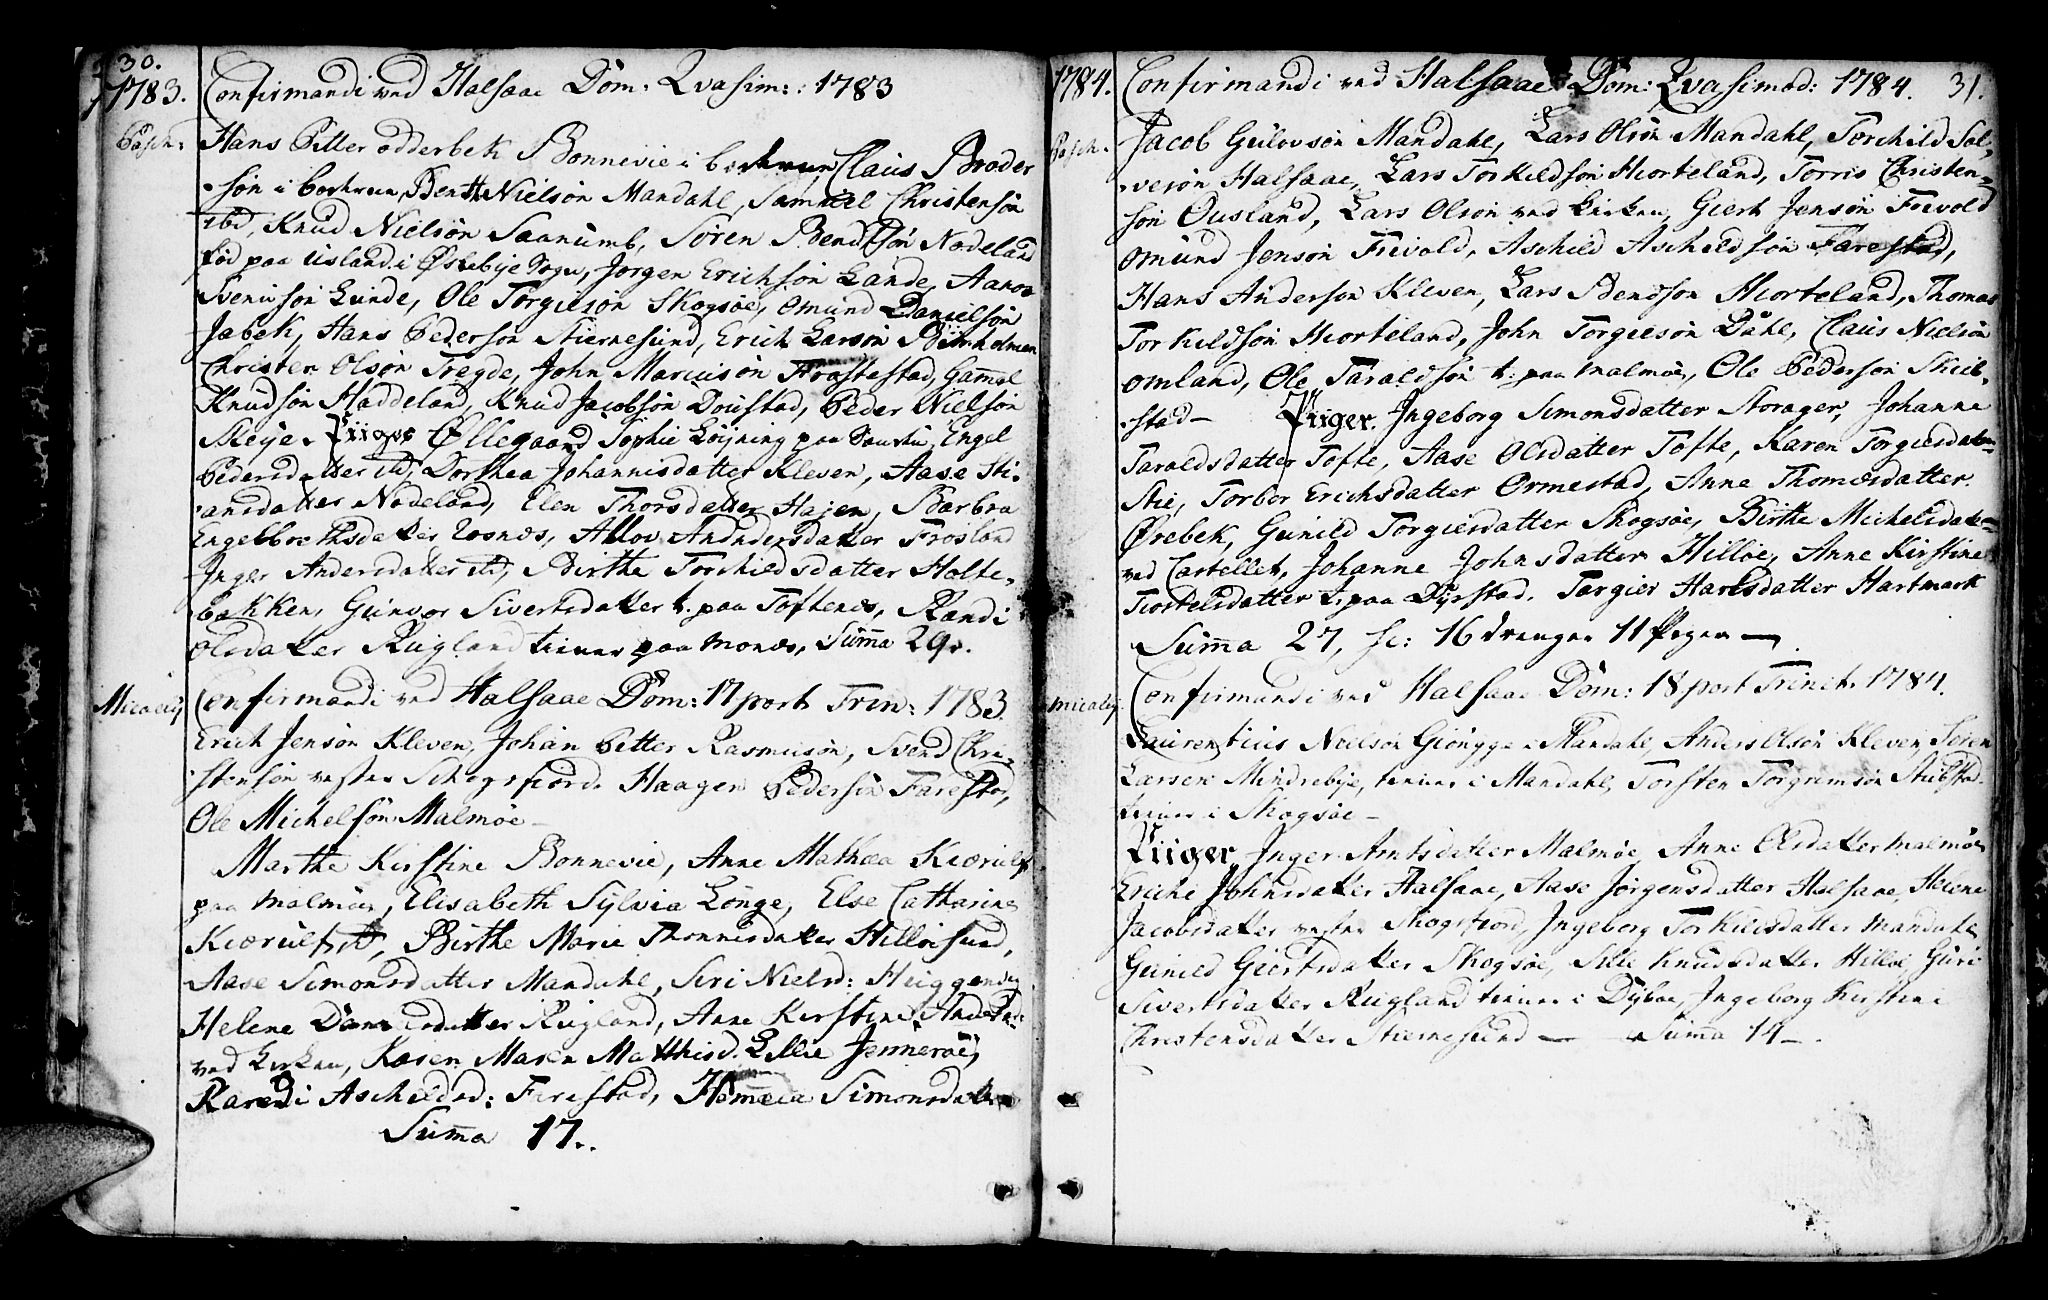 30.
1783.
Confirmandi ved Halsaae Dom: Qvasim: 1783
Pasch:
Hans Petter odderbek Bonnevie i Claus Broder
søn i Benth Nielsøn Mandahl, Samuel Christensøn
ibd, Knud Nielsøn Saanumb, Søren Bendtsøn Nodeland
fød paa Usland i Øslebye Sogn, Jørgen Erichsøn Lande, Aanon
Svenusøn Lunde, Ole Torgiesøn Skogsøe, Omund Danielsøn
Jabek, Hans Pedersøn Stiernesund, Erich Larsøn
Christen Olsøn Tregde, John Marcusøn Frøstestad, Gamel
Knudsøn Haddeland, Knud Jacobsøn Doustad, Peder Nielsøn
Skeje. Piiger Øllegaard Sophie Løjning paa Engel
Pedersdatter ibd, Dorthea Johannisdatter Kleven, Aase Sti-
ansdatter Nodeland, Elen Thorsdatter Hajen, Barbra
Engelbrethsdatter Rosnes, Andersdatter Frøsland
Inger Andersdatter ibd, Birthe Torchildsdatter Holte-
bakken, Gunvor Sivertsdatter t. paa Toftenes, Randi
Olsdatter Rugland tiener paa Mones, Suma 29.
Micaely
Confirmandi ved Halsaae Dom: 17 post Trin: 1783.
Erich Jensøn Kleven, Johan Petter Rasmusøn, Svend Chri-
stensøn vester Schogsfiord, Haagen Pedersøn Farestad,
Ole Michelsøn Malmøe
Marthe Kirstine Bonnevie, Anne Mathea Kiærulf
paa Malmøe, Elisabeth Sylvia Lønge, Else Catharine
Kiærulf ibd, Birthe Marie Thommisdatter Hilløisund,
Aase Simonsdatter Mandahl, Siri Nielsd:
Helene Danielsdatter Rugland, Anne Kirstine
ved Kirken, Karen Maren Matthisd. Lillie Jennerøe,
Randi Aschildsd: Farestad, Simonsdatter
Suma 17.
1784.
Confirmandi ved Halsaae Dom: Qvasimod: 1784. 31.
Pasch.
Jacob Gulovsøn Mandahl, Lars Olsøn Mandahl, Torchild Sol-
versøn Halsaae, Lars Torkildsøn Hiorteland, Torris Christen-
søn Ousland, Lars Olsøn ved Kirken, Giert Jensøn Frivold
Omund Jensøn Frivold, Aschild Aschildsøn Farestad,
Hans Andersøn Kleven, Lars Bendsøn Hiorteland, Thomas
Torkildsøn Hiorteland, John Torgiesøn Dahl, Claus Nielsøn
Omland, Ole Taraldsøn t: paa Malmøe, Ole Pedersøn Skib-
stad- Piiger. Ingeborg Simonsdatter Storager, Johanne
Taraldsdatter Tofte, Aase Olsdatter Tofte, Karen Torgiesdatter
Stie, Torbor Erichsdatter Ormestad, Anne Thomæsdatter
Ørebek, Gunild Torgiesdatter Skogsøe, Birthe Michelsdatter
ved Castellet, Johanne Johnsdatter Hilløe, Anne Kirstine
t. paa Dyrstad. Torgier Harlsdatter Hartmark
Suma 27, sc: 16 drenger 11 Piger
Micaely.
Confirmandi ved Halsaae Dom: 18 post Trinit. 1784.
Laurentius Nielsøn Giøngge i Mandahl, Anders Olsøn Kleven, Søren
Larsen Mindrebye, tiener i Mandahl, Torsten Torgrimsøn Skibstad
tiener i Skogsøe
Piiger, Inger Arntsdatter Malmøe, Anne Olsdatter Malmøe
Johnsdatter Halsaae, Aase Jørgensdatter Halsaae, Helene
Jacobsdatter vester Skogsfiord, Ingeborg Torkildsdatter Mandahl
Gunild Giertsdatter Skogsøe, Silie Knudsdatter Hilløe, Guri
Sivertsdatter Rugland tiener i Dybøe, Ingeborg Kirstine
Christensdatter Stiernesund Suma 14